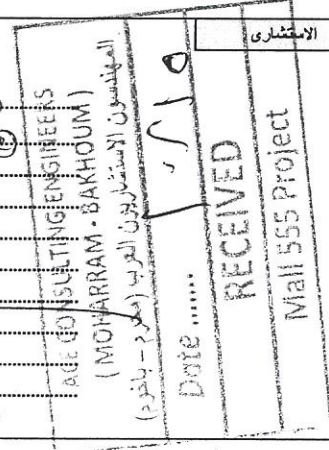 الاستشارى
ACE CONSULTING ENGINEERS
(MOHARRAM - BAKHOUM)
المهندسون الاستشاريون العرب (محرم - باخوم)
Date ......
RECEIVED
Mall 555 Project